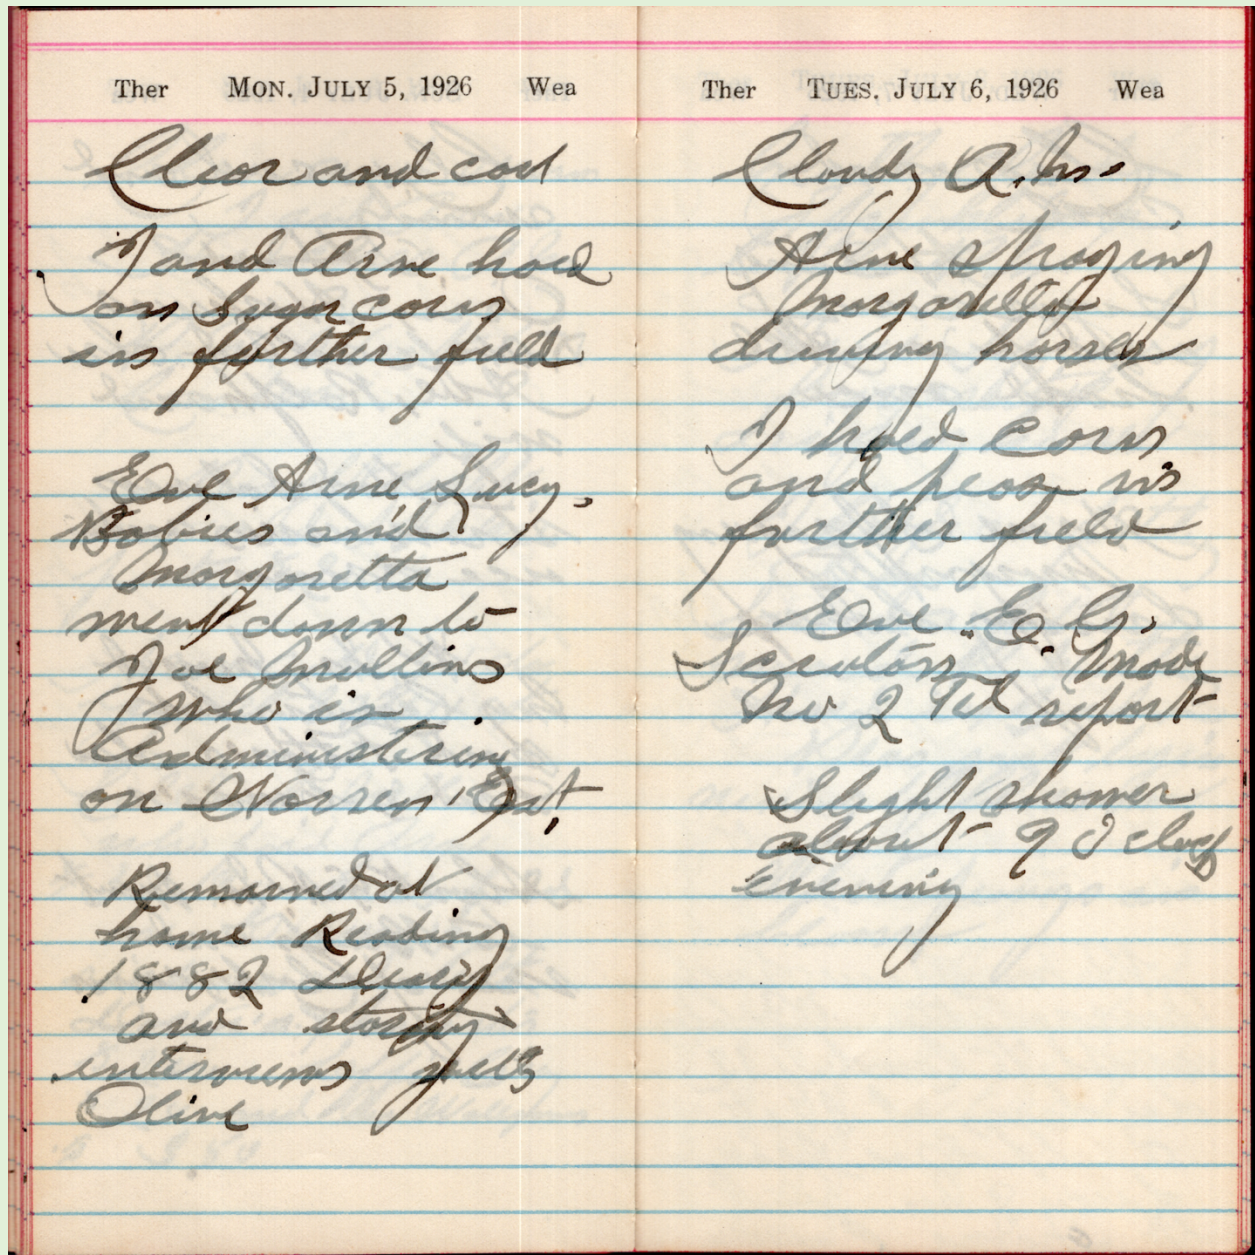 Ther MON. JULY 5, 1926 Wea
Clear and cool
I and Arne hoed
on Sugar corn
in further field
Eve Arne, Lucy,
Babies and
Margaretta
went down to
Joe Mullins
who is
Administering
on Warren Est.
Remained at
home Reading
1882 Diary
and stormy
interviews with
Olive
Ther TUES. JULY 6, 1926 Wea
Cloudy A.M.
Arne spraying
Margaretta
driving horses
I hoed corn
and peas in
further field
Eve E. G.
Made
No 2 Tel report
Slight shower
about 9 O clock
evening